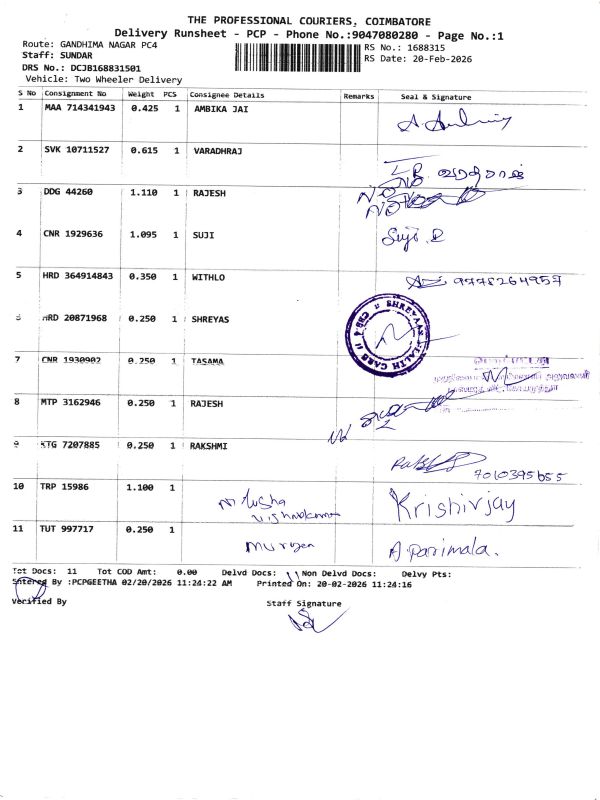 THE PROFESSIONAL COURIERS, COIMBATORE
Delivery Runsheet - PCP - Phone No.:9047080280 - Page No.:1
Route: GANDHIMA NAGAR PC4
RS No.: 1688315
Staff: SUNDAR
RS Date: 20-Feb-2026
DRS No.: DCJB168831501
Vehicle: Two Wheeler Delivery
S No Consignment No Weight PCS Consignee Details Remarks Seal & Signature
1 MAA 714341943 0.425 1 AMBIKA JAI
2 SVK 10711527 0.615 1 VARADHRAJ
3 DDG 44260 1.110 1 RAJESH
4 CNR 1929636 1.095 1 SUJI Suji.R
5 HRD 364914843 0.350 1 WITHLO 9778264957
6 HRD 20871968 0.250 1 SHREYAS
7 CNR 1930902 0.250 1 TASAMA
8 MTP 3162946 0.250 1 RAJESH
9 KTG 7207885 0.250 1 RAKSHMI 7010395655
10 TRP 15986 1.100 1 Krishivjay
11 TUT 997717 0.250 1 Murugen A.Parimala.
Tot Docs: 11 Tot COD Amt: 0.00 Delvd Docs: 11 Non Delvd Docs: Delvy Pts:
Entered By :PCPGEETHA 02/20/2026 11:24:22 AM Printed On: 20-02-2026 11:24:16
Verified By
Staff Signature